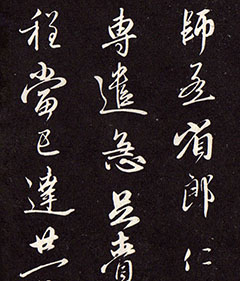 師省郎仁
專遣急足賫
程當已達